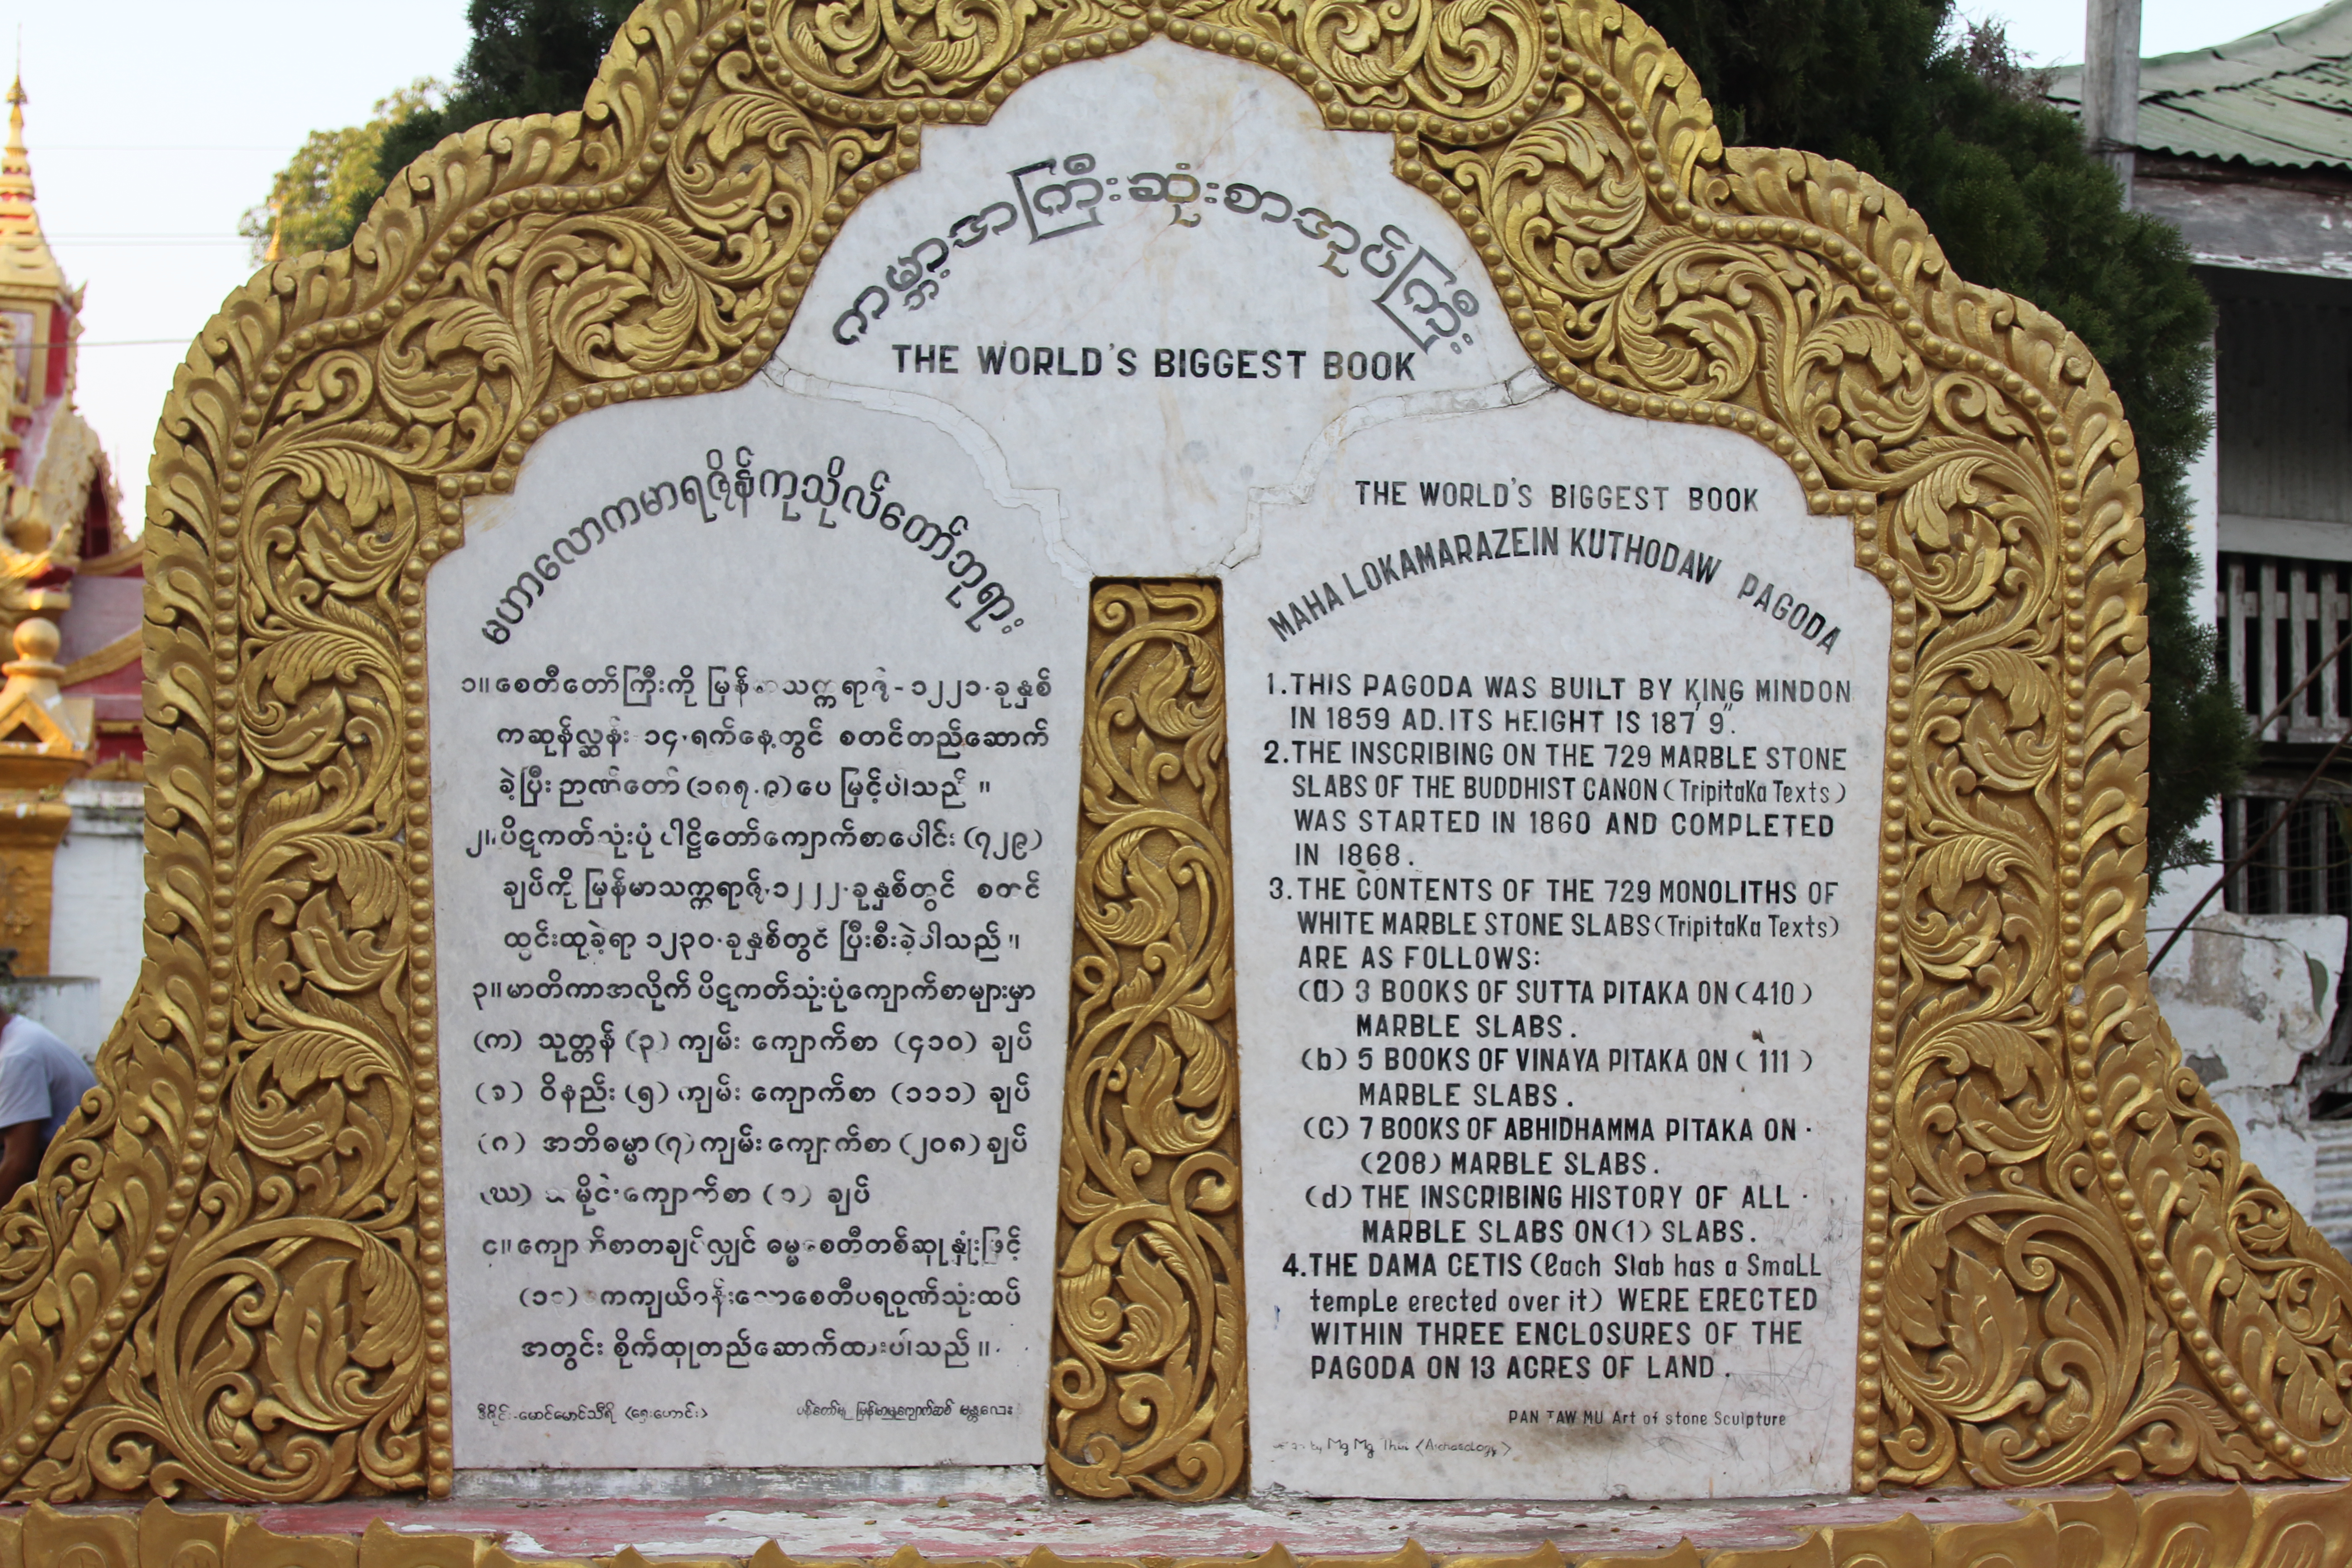 ကမ္ဘာ့အကြီးဆုံးစာအုပ်ကြီး
THE WORLD'S BIGGEST BOOK
မဟာလောကမာရဇိန်ကုသိုလ်တော်ဘုရား
၁။ စေတီတော်ကြီးကို မြန်မာသက္ကရာဇ် - ၁၂၂၁ - ခုနှစ်
ကဆုန်လ္ဆန်း ၁၄ - ရက်နေ့တွင် စတင်တည်ဆောက်
ခဲ့ပြီး ဉာဏ်တော် (၁၈၇.၉) ပေ မြင့်ပါသည် ။
၂။ ပိဋကတ်သုံးပုံ ပါဠိတော်ကျောက်စာပေါင်း (၇၂၉)
ချပ်ကို မြန်မာသက္ကရာဇ်.၁၂၂၂.ခုနှစ်တွင် စတင်
ထွင်းထုခဲ့ရာ ၁၂၃၀.ခုနှစ်တွင် ပြီးစီးခဲ့ပါသည် ။
၃။ မာတိကာအလိုက် ပိဋကတ်သုံးပုံကျောက်စာများမှာ
(က) သုတ္တန် (၃) ကျမ်း ကျောက်စာ (၄၁၀) ချပ်
(ခ) ဝိနည်း (၅) ကျမ်း ကျောက်စာ (၁၁၁) ချပ်
(ဂ) အဘိဓမ္မာ (၇) ကျမ်း ကျောက်စာ (၂၀၈) ချပ်
(ဃ) သမိုင်းကျောက်စာ (၁) ချပ်
၄။ ကျောက်စာတချပ်လျှင် ဓမ္မစေတီတစ်ဆူနှုံးဖြင့်
(၁၃) ဧကကျယ်ဝန်းသောစေတီပရဝုဏ်သုံးထပ်
အတွင်း စိုက်ထူတည်ဆောက်ထားပါသည် ။
ဒီဇိုင်း-မောင်မောင်သီရိ (ရှေးဟောင်း)
ပန်တော်မူ မြန်မာမှုကျောက်ဆစ် မန္တလေး
THE WORLD'S BIGGEST BOOK
MAHA LOKAMARAZEIN KUTHODAW PAGODA
1. THIS PAGODA WAS BUILT BY KING MINDON
IN 1859 AD. ITS HEIGHT IS 187' 9".
2. THE INSCRIBING ON THE 729 MARBLE STONE
SLABS OF THE BUDDHIST CANON (TripitaKa Texts)
WAS STARTED IN 1860 AND COMPLETED
IN 1868.
3. THE CONTENTS OF THE 729 MONOLITHS OF
WHITE MARBLE STONE SLABS (TripitaKa Texts)
ARE AS FOLLOWS:
(a) 3 BOOKS OF SUTTA PITAKA ON (410)
MARBLE SLABS.
(b) 5 BOOKS OF VINAYA PITAKA ON (111)
MARBLE SLABS.
(C) 7 BOOKS OF ABHIDHAMMA PITAKA ON ·
(208) MARBLE SLABS.
(d) THE INSCRIBING HISTORY OF ALL ·
MARBLE SLABS ON (1) SLABS.
4. THE DAMA CETIS (Each Slab has a SmaLL
tempLe erected over it) WERE ERECTED
WITHIN THREE ENCLOSURES OF THE
PAGODA ON 13 ACRES OF LAND.
PAN TAW MU Art of stone Sculpture
by Mg Mg (Archaeology)